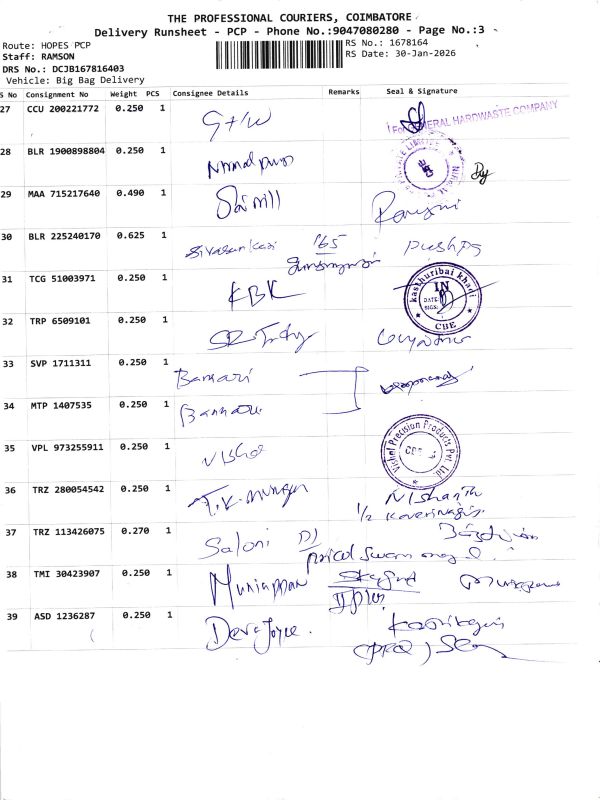 THE PROFESSIONAL COURIERS, COIMBATORE
Delivery Runsheet - PCP - Phone No.:9047080280 - Page No.:3
Route: HOPES PCP
RS No.: 1678164
Staff: RAMSON
RS Date: 30-Jan-2026
DRS No.: DCJB167816403
Vehicle: Big Bag Delivery
S No Consignment No Weight PCS Consignee Details Remarks Seal & Signature
27 CCU 200221772 0.250 1
For GENERAL HARDWASTE COMPANY
28 BLR 1900898804 0.250 1
29 MAA 715217640 0.490 1
30 BLR 225240170 0.625 1 Sivasankari 165 pushpa
31 TCG 51003971 0.250 1 KBK
kasthuribai khadi
IN
DATE:
SIGN:
CBE
32 TRP 6509101 0.250 1
33 SVP 1711311 0.250 1 Bannari
34 MTP 1407535 0.250 1 Bannari
35 VPL 973255911 0.250 1 Vishal
Vishal Precision Products Pvt. Ltd.
36 TRZ 280054542 0.250 1 T.K. Murugan Nishanth
1/2 Kaverinagar
37 TRZ 113426075 0.270 1 Saloni DJ
pricol
38 TMI 30423907 0.250 1 Muniappan
39 ASD 1236287 0.250 1 Deva Joyce.